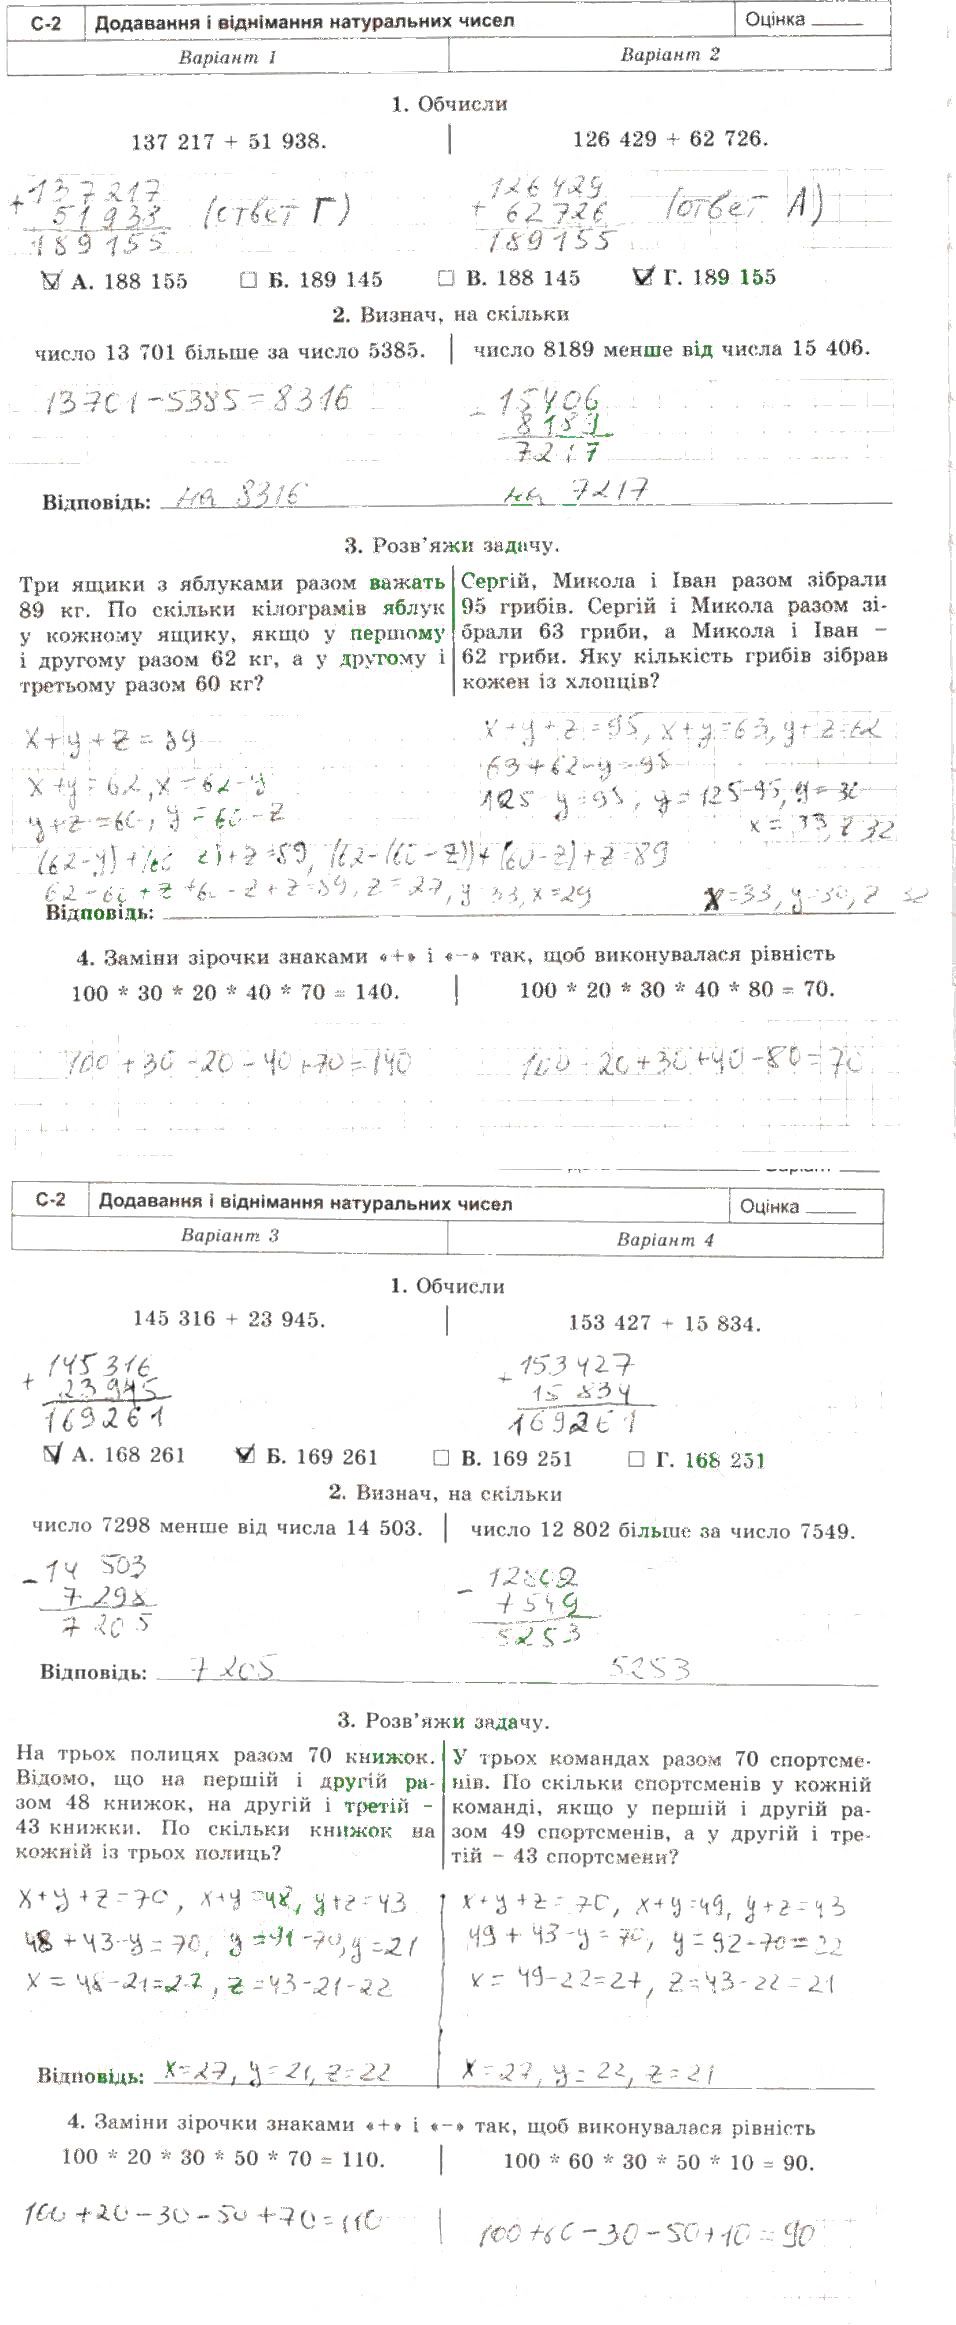 С-2 Додавання і віднімання натуральних чисел Оцінка
Варіант 1 Варіант 2
1. Обчисли
137 217 + 51 938. 126 429 + 62 726.
+137217 126429
51938 (ответ Г) + 62726 (ответ А)
189155 189155
А. 188 155 Б. 189 145 В. 188 145 Г. 189 155
2. Визнач, на скільки
число 13 701 більше за число 5385. число 8189 менше від числа 15 406.
13701-5385=8316 - 15406
8189
7217
Відповідь: на 8316 на 7217
3. Розв'яжи задачу.
Три ящики з яблуками разом важать
89 кг. По скільки кілограмів яблук
у кожному ящику, якщо у першому
і другому разом 62 кг, а у другому і
третьому разом 60 кг?
Сергій, Микола і Іван разом зібрали
95 грибів. Сергій і Микола разом зі-
брали 63 гриби, а Микола і Іван –
62 гриби. Яку кількість грибів зібрав
кожен із хлопців?
x+y+z=89
x+y=62, x=62-y
y+z=60, y=60-z
(62-y)+(60-z)+z=89, (62-(60-z))+(60-z)+z=89
62-60+z+60-z+z=89, z=27, y=33, x=29
x+y+z=95, x+y=63, y+z=62
63+62-y=95
125-y=95, y=125-95, y=30
x=33, z 32
Відповідь: x=33, y=30, z 32
4. Заміни зірочки знаками «+» і «–» так, щоб виконувалася рівність
100 * 30 * 20 * 40 * 70 = 140. 100 * 20 * 30 * 40 * 80 = 70.
100+30-20-40+70=140 100-20+30+40-80=70
С-2 Додавання і віднімання натуральних чисел Оцінка
Варіант 3 Варіант 4
1. Обчисли
145 316 + 23 945. 153 427 + 15 834.
+ 145316 + 153427
23945 15834
169261 169261
А. 168 261 Б. 169 261 В. 169 251 Г. 168 251
2. Визнач, на скільки
число 7298 менше від числа 14 503. число 12 802 більше за число 7549.
- 14 503 - 12802
7 298 7549
7 205 5253
Відповідь: 7205 5253
3. Розв'яжи задачу.
На трьох полицях разом 70 книжок.
Відомо, що на першій і другій ра-
зом 48 книжок, на другій і третій –
43 книжки. По скільки книжок на
кожній із трьох полиць?
У трьох командах разом 70 спортсме-
нів. По скільки спортсменів у кожній
команді, якщо у першій і другій ра-
зом 49 спортсменів, а у другій і тре-
тій – 43 спортсмени?
x+y+z=70, x+y=48, y+z=43
48+43-y=70, y=91-70, y=21
x=48-21=27, z=43-21-22
x+y+z=70, x+y=49, y+z=43
49+43-y=70, y=92-70=22
x=49-22=27, z=43-22=21
Відповідь: x=27, y=21, z=22 x=27, y=22, z=21
4. Заміни зірочки знаками «+» і «–» так, щоб виконувалася рівність
100 * 20 * 30 * 50 * 70 = 110. 100 * 60 * 30 * 50 * 10 = 90.
100+20-30-50+70=110 100+60-30-50+10=90